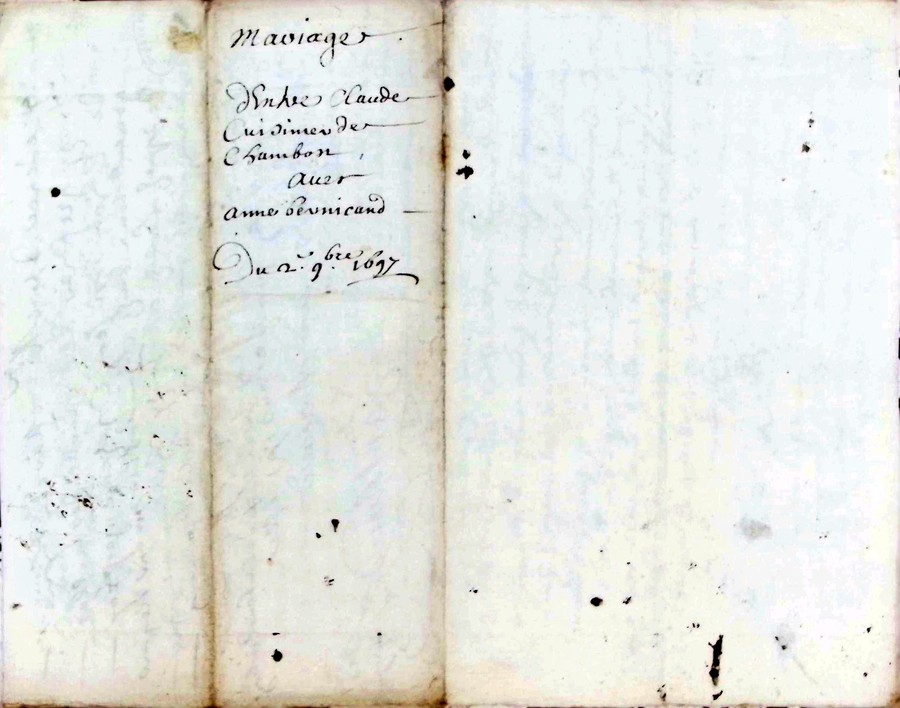 Mariage
d'Entre Claude
Cuisinier de
Chambon
avec
anne
Du 2e 9bre 1697